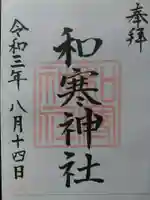 奉拝
和寒神社
令和三年八月十四日